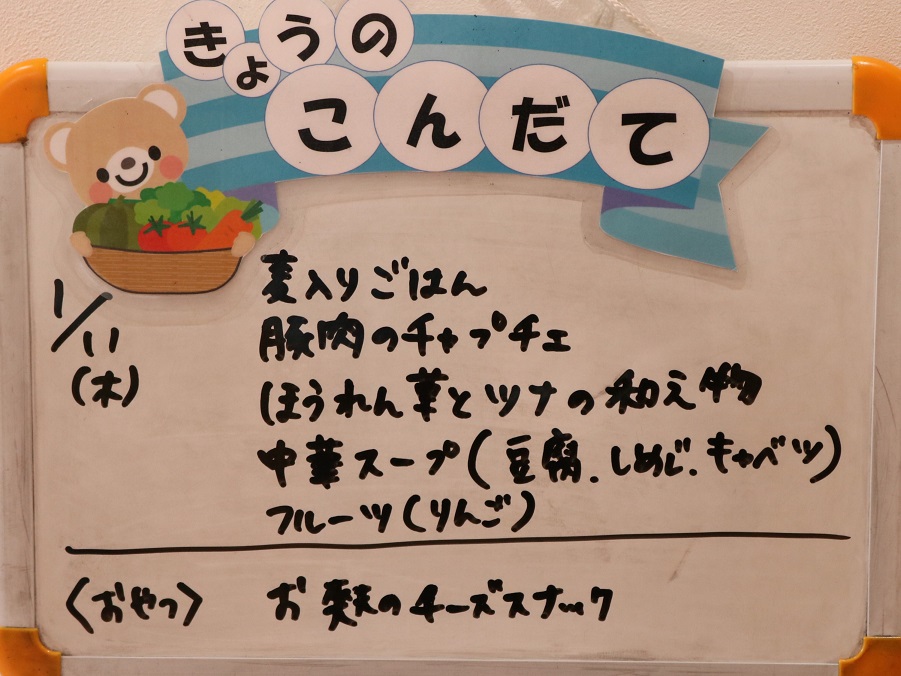 きょうの
こんだて
1/11
(木)
麦入りごはん
豚肉のチャプチェ
ほうれん草とツナの和え物
中華スープ(豆腐.しめじ.キャベツ)
フルーツ(りんご)
〈おやつ〉 お麩のチーズスナック